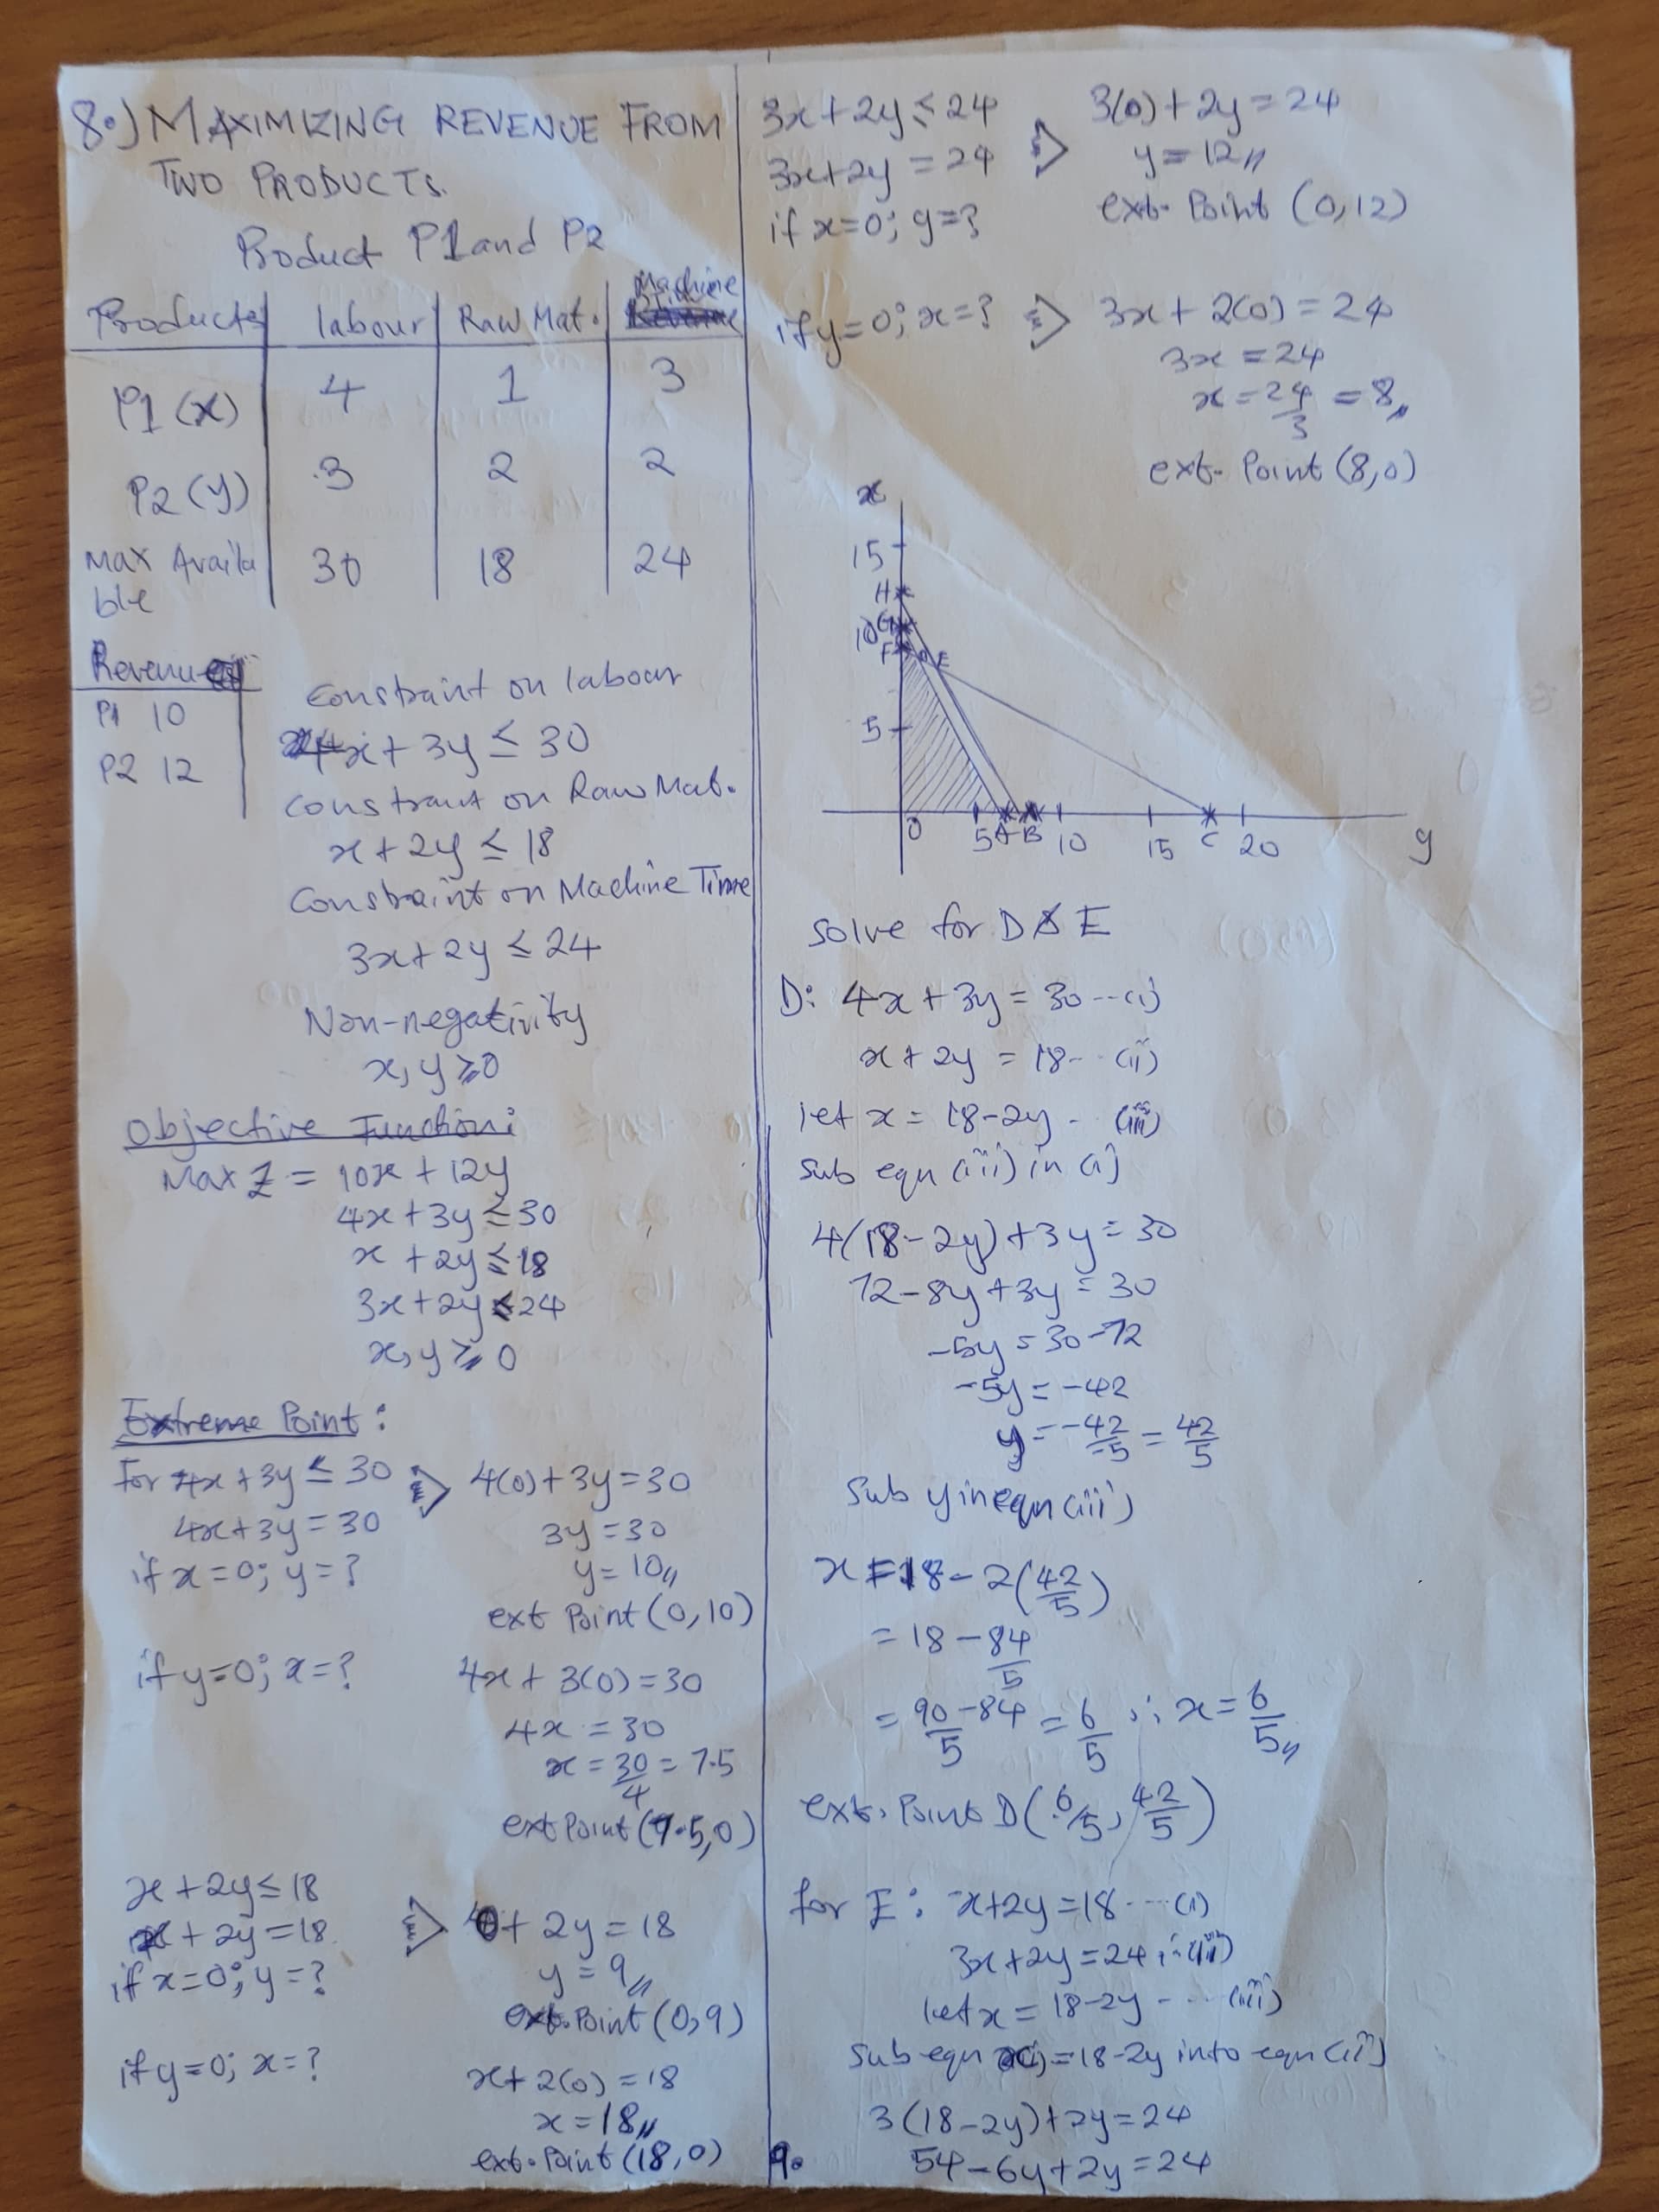 8.) MAXIMIZING REVENUE FROM
TWO PRODUCTS.
Product P1 and P2
Products labour Raw Mat. Machine
P1 (x) 4 1 3
P2 (y) 3 2 2
Max Availa
ble 30 18 24
Revenue
P1 10
P2 12
Constraint on labour
4x + 3y ≤ 30
Constraint on Raw Mat.
x + 2y ≤ 18
Constraint on Machine Time
3x + 2y ≤ 24
Non-negativity
x, y ≥ 0
Objective Function:
Max Z = 10x + 12y
4x + 3y ≤ 30
x + 2y ≤ 18
3x + 2y ≤ 24
x, y ≥ 0
Extreme Point:
For 4x + 3y ≤ 30 ⇒ 4(0) + 3y = 30
4x + 3y = 30 3y = 30
if x=0; y=? y = 10
ext Point (0, 10)
if y=0; x=? 4x + 3(0) = 30
4x = 30
x = 30/4 = 7.5
ext Point (7.5, 0)
x + 2y ≤ 18
x + 2y = 18 ⇒ 0 + 2y = 18
if x=0; y=? y = 9
ext. Point (0, 9)
if y=0; x=? x + 2(0) = 18
x = 18
ext. Point (18, 0)
3x + 2y ≤ 24 ⇒ 3(0) + 2y = 24
3x + 2y = 24 y = 12
if x=0; y=? ext. Point (0, 12)
if y=0; x=? ⇒ 3x + 2(0) = 24
3x = 24
x = 24/3 = 8
ext. Point (8, 0)
x
15
H
10 G
F D E
5
0 5 A B 10 15 C 20 y
Solve for D & E
D: 4x + 3y = 30 -- (i)
x + 2y = 18 - - (ii)
let x = 18 - 2y - (iii)
Sub eqn (iii) in (i)
4(18 - 2y) + 3y = 30
72 - 8y + 3y = 30
-5y = 30 - 72
-5y = -42
y = -42/-5 = 42/5
Sub y in eqn (iii)
x = 18 - 2(42/5)
= 18 - 84/5
= 90-84/5 = 6/5 ∴ x = 6/5
ext. Point D (6/5, 42/5)
for E: x + 2y = 18 ---- (i)
3x + 2y = 24 -- (ii)
let x = 18 - 2y - - -- (iii)
Sub eqn = 18 - 2y into eqn (ii)
3(18 - 2y) + 2y = 24
9. 54 - 6y + 2y = 24